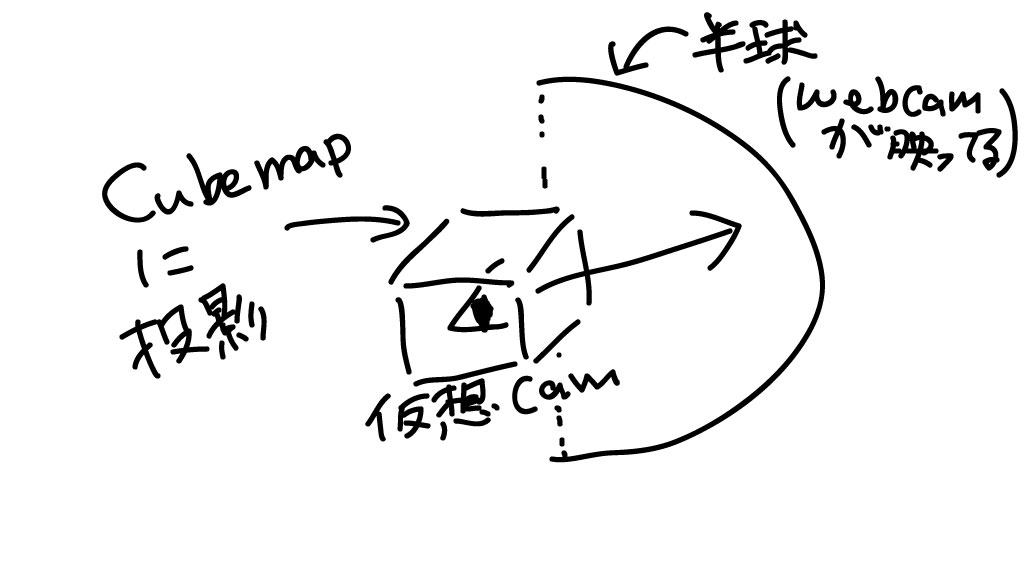 半球
(webcam
が映ってる)
Cubemap
に
投影
仮想Cam